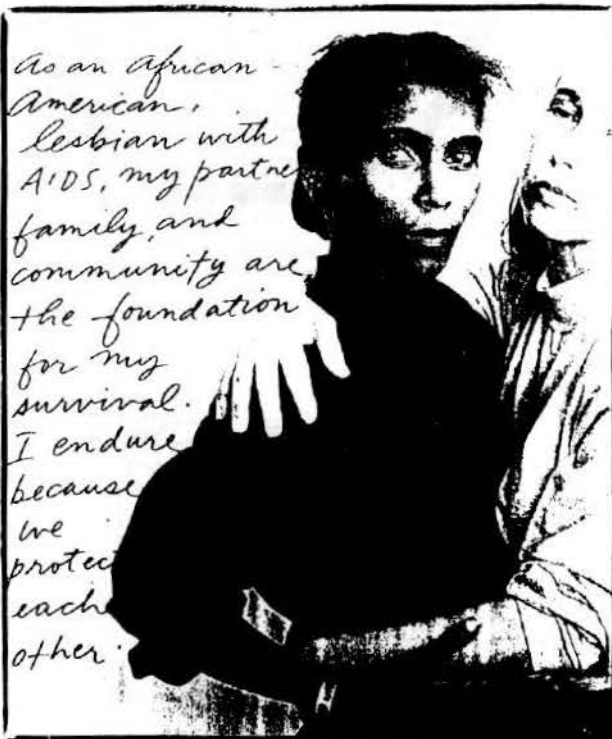 As an African
American,
lesbian with
AIDS, my partne
family, and
community are
the foundation
for my
survival.
I endure
because
we
protect
each
other.